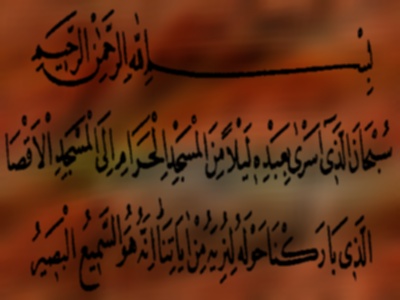 بِسْمِ اللَّهِ الرَّحْمَٰنِ الرَّحِيمِ
سُبْحَانَ الَّذِي أَسْرَىٰ بِعَبْدِهِ لَيْلًا مِنَ الْمَسْجِدِ الْحَرَامِ إِلَى الْمَسْجِدِ الْأَقْصَا
الَّذِي بَارَكْنَا حَوْلَهُ لِنُرِيَهُ مِنْ آيَاتِنَا إِنَّهُ هُوَ السَّمِيعُ الْبَصِيرُ